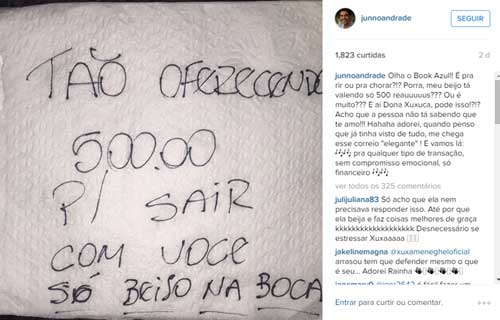 TÃO OFERECENDO
500.00
P/ SAIR
COM VOCE
SÓ BEIJO NA BOCA
junnoandrade
SEGUIR
1,823 curtidas
2 d
junnoandrade Olha o Book Azul!! É pra
rir ou pra chorar?!? Porra, meu beijo tá
valendo só 500 reauuuuus??? Ou é
muito??? E aí Dona Xuxuca, pode isso!?!?
Acho que a pessoa não tá sabendo que
te amo!!! Hahaha adorei, quando penso
que já tinha visto de tudo, me chega
esse correio "elegante" ! E vamos lá:
🎶🎶 pra qualquer tipo de transação,
sem compromisso emocional, só
financeiro 🎶🎶
ver todos os 325 comentários
julijuliana83 Só acho que ela nem
precisava responder isso. Até por que
ela beija e faz coisas melhores de graça
kkkkkkkkkkkkkkkkkkk Desnecessário se
estressar Xuxaaaaa
jakelinemagna @xuxameneghеloficial
arrasou tem que defender mesmo o que
é seu... Adorei Rainha
Entrar para curtir ou comentar.